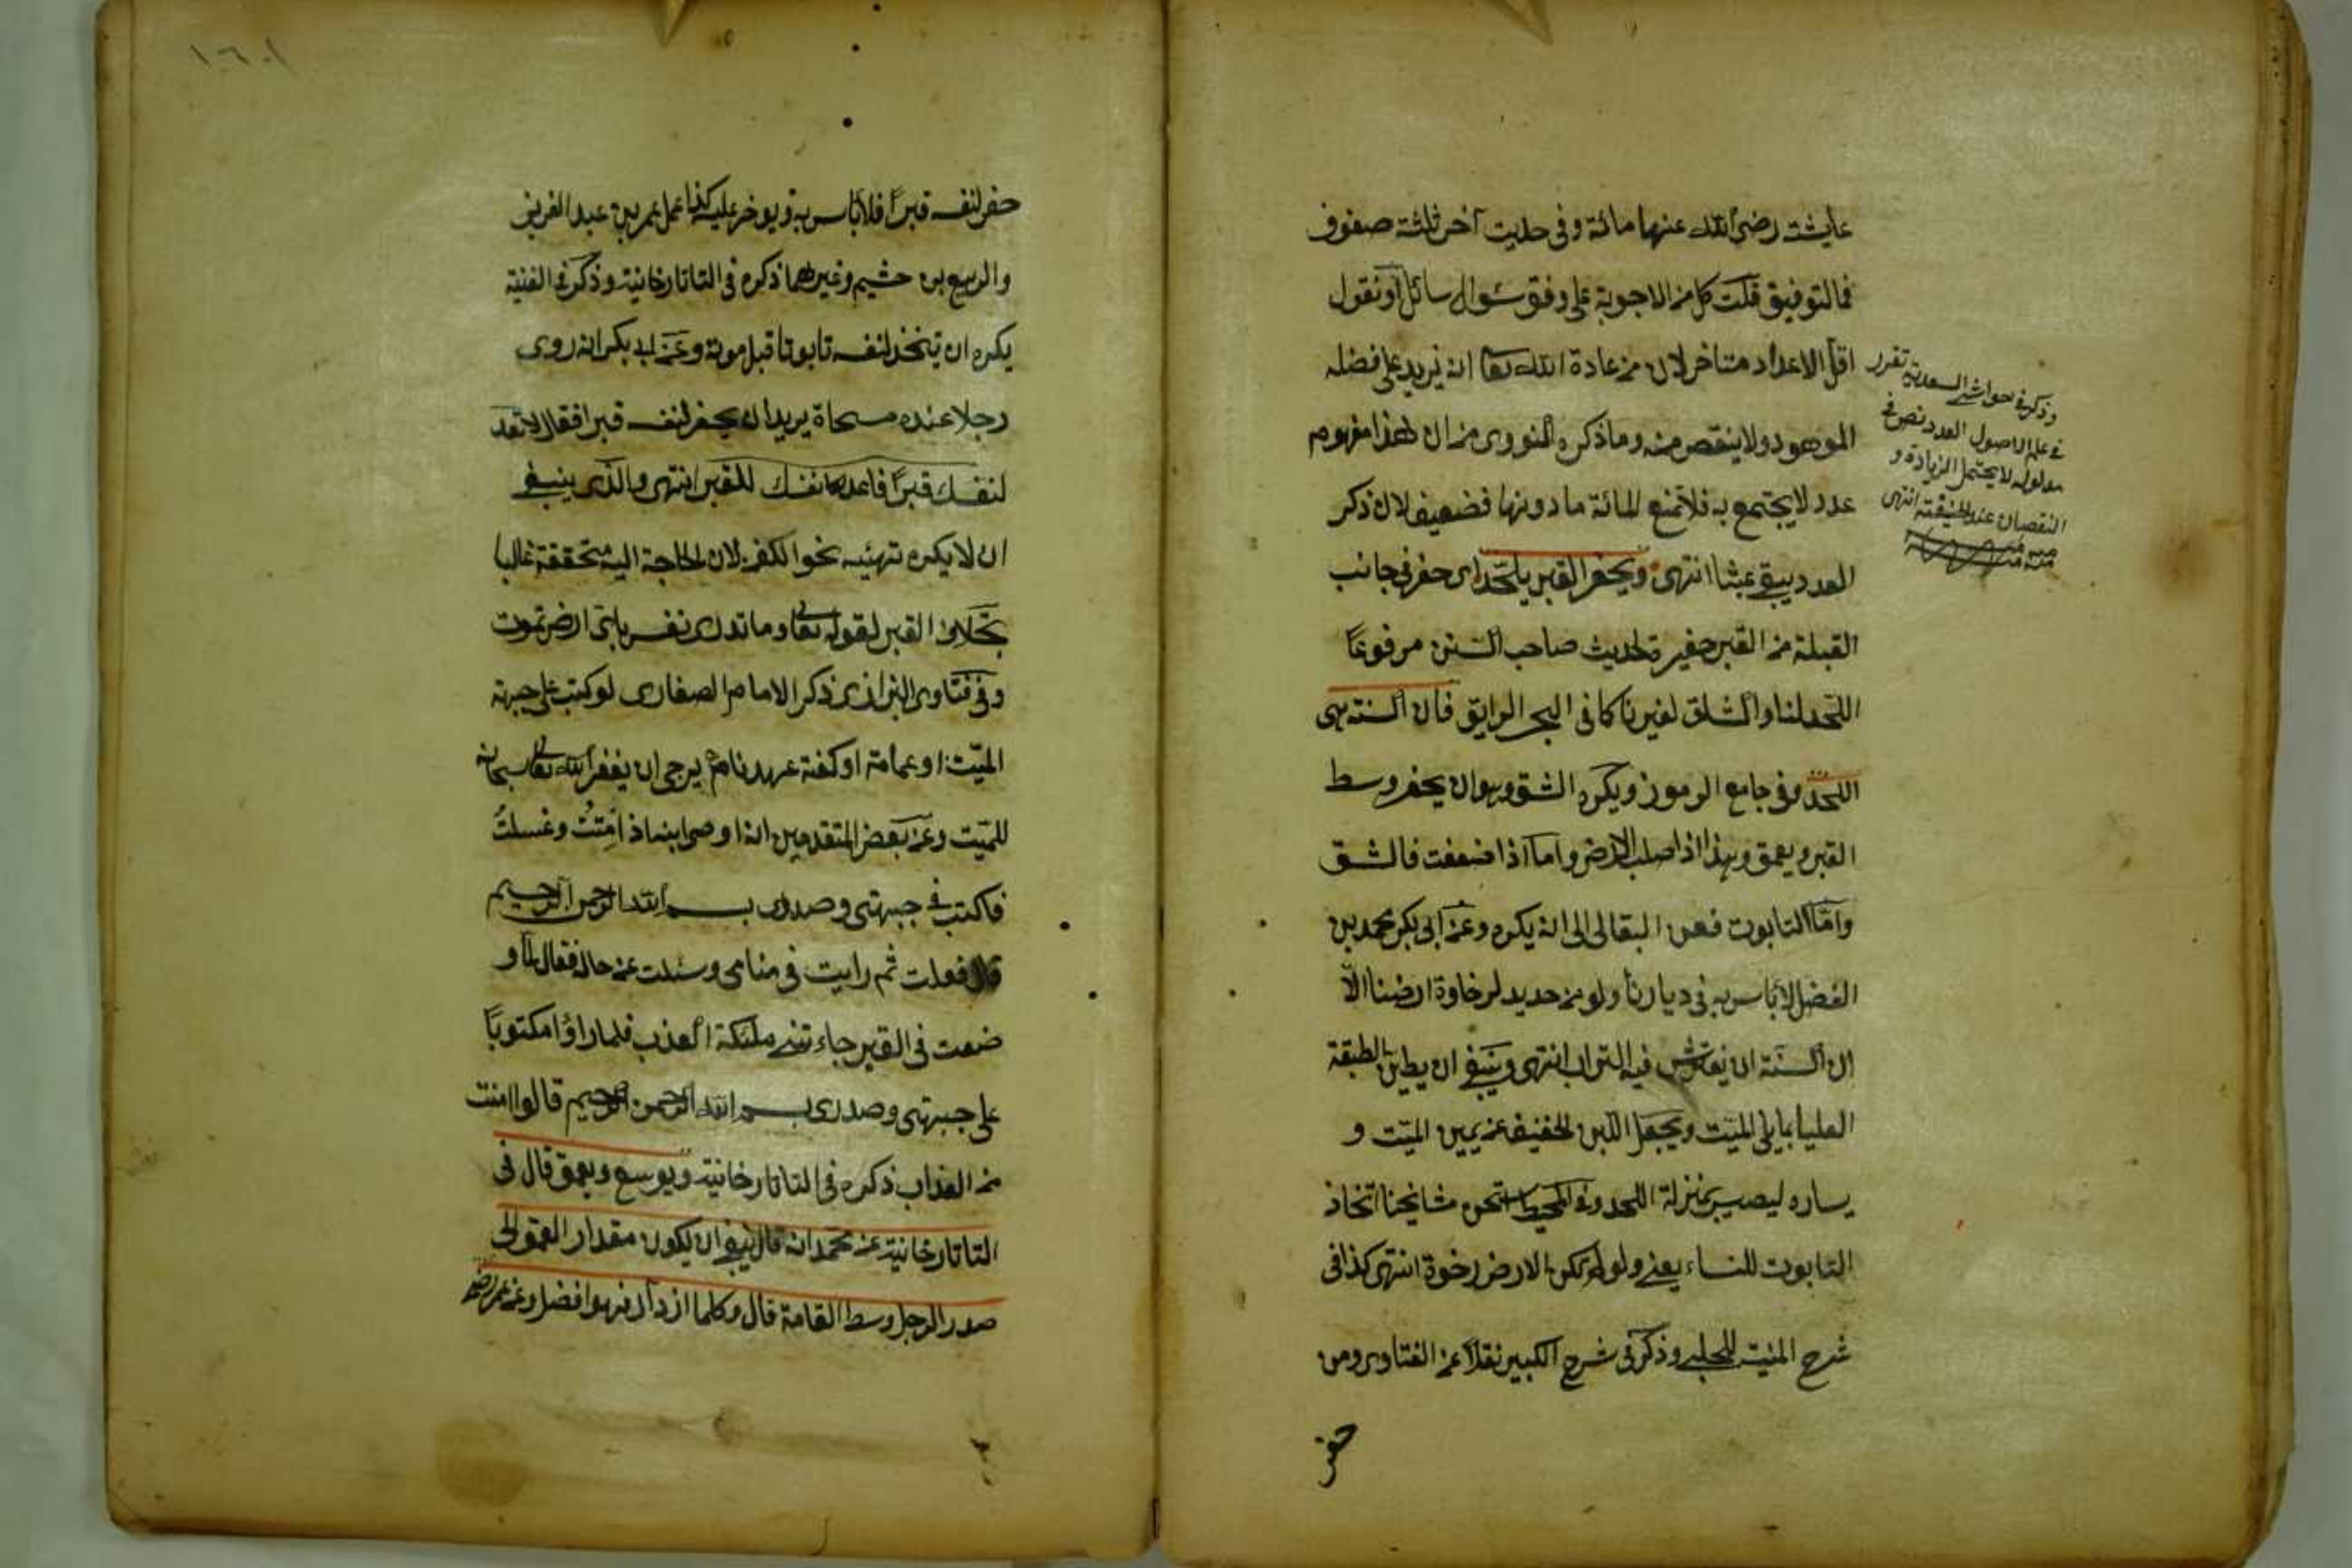 عايشة رضى الله عنها مائة وفى حديث آخر ثلثة صفوف
فالتوفيق قلت كل من الاجوبة على وفق سئوال سائل او نقول
اقل الاعداد متاخر لان من عادة الله تعا ان يزيد على فضله
الموهود ولا ينقص منه وما ذكره النووى من ان هذا مفهوم
عدد لا يحتج به فلا تمنع المائة ما دونها فضعيف لان ذكر
العدد يبقى عبثا انتهى ويحفر القبر يلحد اى حفر فى جانب
القبلة من القبر حفيرة لحديث صاحب السنن مرفوعًا
اللحد لنا والشق لغيرنا كما فى البحر الرايق فان السنة هى
اللحد وفى جامع الرموز ويكره الشق وهو ان يحفر وسط
القبر ويعمق وهذا اذا صلب الارض واما اذا ضعفت فالشق
وامّا التابوت فعن البقالى الى انه يكره وعن ابى بكر محمد بن
الفضل لا باس به فى ديارنا ولو من حديد لرخاوة ارضنا الّا
ان السنّة ان يفترش فيه التراب انتهى وينبغى ان يطين الطبقة
العليا بما يلى الميّت ويجعل اللبن الخفيف عن يمين الميّت و
يساره ليصير بمنزلة اللحد وفى المحيط استحسن مشايخنا اتخاذ
التابوت للنساء يعنى ولو لم يكن الارض رخوة انتهى كذا فى
شرح المنية للحلبى وذكر فى شرح الكبير نقلًا عن الفتاوى ومن
حفر
وذكر فى حواشى السعدية تقرر
فى علم الاصول العدد نص فى
مدلوله لا يحتمل الزيادة و
النقصان عند الحنفية انتهى
١٠٦٠١
حفر لنفسه قبرًا فلا باس به ويوخر عليه كذا عمل عمر بن عبد العزيز
والربيع بن خشيم وغيرهما ذكره فى التاتارخانية وذكر فى القنية
يكره ان يتخذ لنفسه تابوتا قبل موته وعن ابى بكر انه روى
رجلا عنده مسحاة يريد ان يحفر لنفسه قبرا فقال لا تعد
لنفسك قبرًا فاعد نفسك للقبر انتهى والذى ينبغى
ان لا يكره تهيئه نحو الكفن لان الحاجة اليه متحققة غالبا
بخلاف القبر لقوله تعا وما تدرى نفس باىّ ارض تموت
وفى فتاوى البزازى ذكر الامام الصفارى لو كتب على جبهة
الميّت او عمامة او كفنة عهد نامه يرجى ان يغفر الله تعا سبحانه
للميّت وعن بعض المتقدمين انه اوصى ابنه اذا متتُ وغسلتُ
فاكتب فى جبهتى وصدرى بسم الله الرحمن الرحيم
قال ففعلت ثم رايت فى منامى وسئلت عن حاله فقال لما و
ضعت فى القبر جاءتنى ملئكة العذب فلما راؤا مكتوبًا
على جبهتى وصدرى بسم الله الرحمن الرحيم قالوا امنت
من العذاب ذكره فى التاتارخانية ويوسع ويعمق قال فى
التاتارخانية عن محمد انه قال ينبغى ان يكون مقدار العمق الى
صدر الرجل وسط القامة قال وكلما ازداد فهو افضل وعن عمر رضى